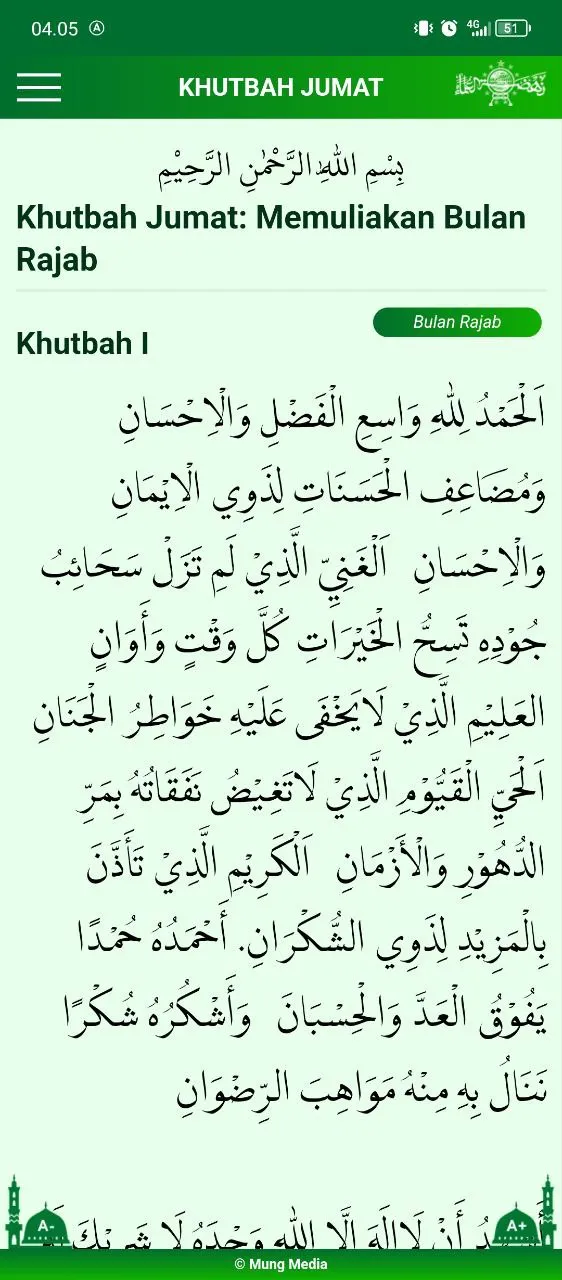 04.05 A 4G 51
KHUTBAH JUMAT
بِسْمِ اللهِ الرَّحْمٰنِ الرَّحِيْمِ
Khutbah Jumat: Memuliakan Bulan
Rajab
Bulan Rajab
Khutbah I
اَلْحَمْدُ لِلّٰهِ وَاسِعِ الْفَضْلِ وَالْاِحْسَانِ
وَمُضَاعِفِ الْحَسَنَاتِ لِذَوِي الْاِيْمَانِ
وَالْاِحْسَانِ اَلْغَنِيِّ الَّذِيْ لَمِ تَزَلْ سَحَائِبُ
جُوْدِهِ تَسِحُّ الْخَيْرَاتِ كُلَّ وَقْتٍ وَأَوَانٍ
العَلِيْمِ الَّذِيْ لَايَخْفَى عَلَيْهِ خَوَاطِرُ الْجَنَانِ
اَلْحَيِّ الْقَيُّوْمِ الَّذِيْ لَاتَغِيْضُ نَفَقَاتُهُ بِمَرِّ
الدُّهُوْرِ وَالْأَزْمَانِ اَلْكَرِيْمِ الَّذِيْ تَأَذَّنَ
بِالْمَزِيْدِ لِذَوِي الشُّكْرَانِ. أَحْمَدُهُ حُمْدًا
يَفُوْقُ الْعَدَّ وَالْحِسْبَانَ وَأَشْكُرُهُ شُكْرًا
نَنَالُ بِهِ مِنْهُ مَوَاهِبَ الرِّضْوَانِ
أَنْ لَااِلَهَ اِلَّا اللهِ وَحْدَهُ لَا شَرِيْكَ
A- A+
© Mung Media